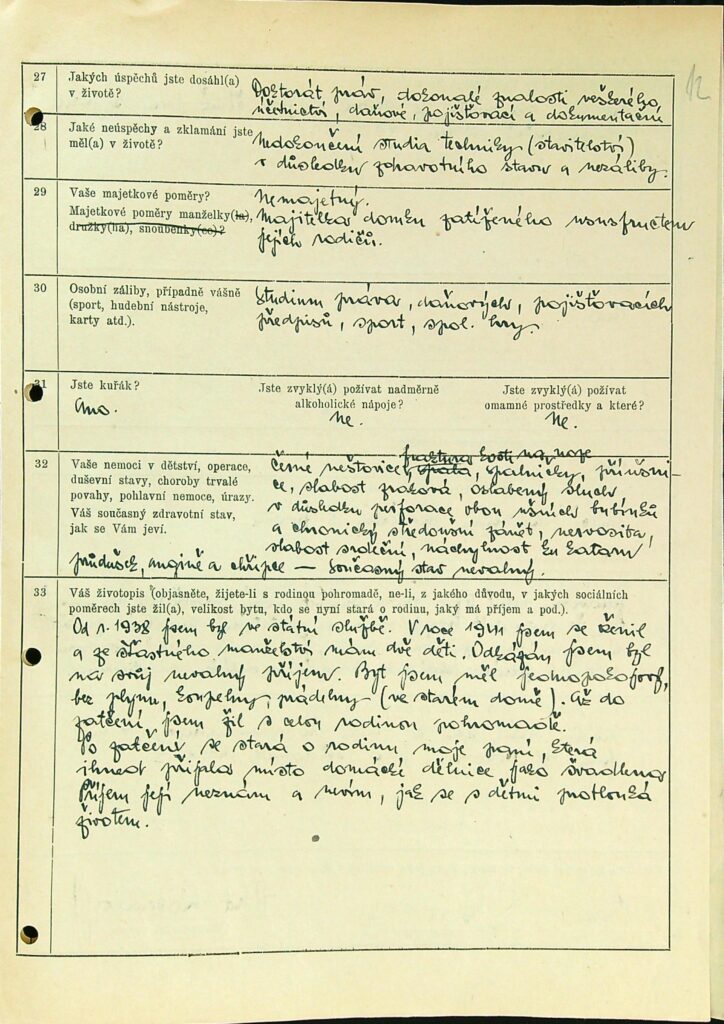 12
27 Jakých úspěchů jste dosáhl(a)
v životě?
Doktorát práv, dokonalé znalosti veškerého
účetnictví, daňové, pojišťovací a dokumentační
28 Jaké neúspěchy a zklamání jste
měl(a) v životě?
Nedokončení studia techniky (stavitelství)
v důsledku zdravotního stavu a nezáliby.
29 Vaše majetkové poměry?
Nemajetný.
Majetkové poměry manželky(la),
družky(ha), snoubenky(ce)?
Majitelka domku zatíženého ususfructem
jejích rodičů.
30 Osobní záliby, případně vášně
(sport, hudební nástroje,
karty atd.).
Studium práva, daňových, pojišťovacích
předpisů, sport, spol. hry.
31 Jste kuřák?
Ano.
Jste zvyklý(á) požívat nadměrně
alkoholické nápoje?
Ne.
Jste zvyklý(á) požívat
omamné prostředky a které?
Ne.
32 Vaše nemoci v dětství, operace,
duševní stavy, choroby trvalé
povahy, pohlavní nemoce, úrazy.
Váš současný zdravotní stav,
jak se Vám jeví.
fraktura kosti na noze
černé neštovice, spála, spalničky, příušni-
ce, slabost zraková, oslabený sluch
v důsledku perforace obou ušních bubínků
a chronický středoušní zánět, nervosita,
slabost srdeční, náchylnost ku kataru
průdušek, angině a chřipce — Současný stav nevalný.
33 Váš životopis (objasněte, žijete-li s rodinou pohromadě, ne-li, z jakého důvodu, v jakých sociálních
poměrech jste žil(a), velikost bytu, kdo se nyní stará o rodinu, jaký má příjem a pod.).
Od r. 1938 jsem byl ve státní službě. V roce 1941 jsem se ženil
a ze šťastného manželství mám dvě děti. Odkázán jsem byl
na svůj nevalný příjem. Byt jsem měl jednopokojový,
bez plynu, koupelny, prádelny (ve starém domě). Až do
zatčení jsem žil s celou rodinou pohromadě.
Po zatčení se stará o rodinu moje paní, která
ihned přijala místo domácké dělnice jako švadlena
Příjem její neznám a nevím, jak se s dětmi protlouká
životem.